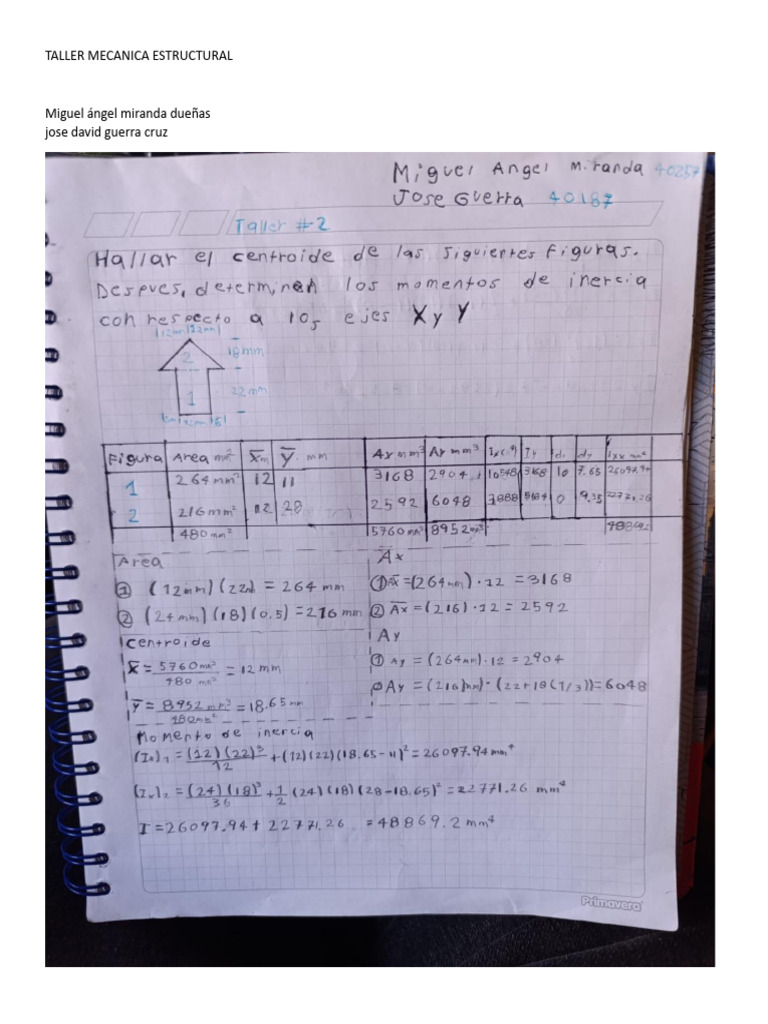 TALLER MECANICA ESTRUCTURAL
Miguel ángel miranda dueñas
jose david guerra cruz
Miguel Angel Miranda 40257
Jose Guerra 40187
Taller #2
Hallar el centroide de las siguientes figuras.
Despues, determinen los momentos de inercia
con respecto a los ejes X y Y
12mm 12mm
2
18mm
1
22mm
Figura Area mm² X̄ Ȳ mm Ay mm³ Ay mm³ Iy dy Ixx
1 264mm² 12 11 3168 2904 10648 3168 10 7.65 26097.94
2 216mm² 12 28 2592 6048 3888 0 9.35 22771.26
480mm² 5760mm³ 8952mm³
Area
① (12mm) (22m) = 264 mm
② (24mm) (18) (0.5) = 216 mm
Āx
① Āx = (264mm) · 12 = 3168
② Āx = (216) · 12 = 2592
Centroide
X̄ = 5760mm³ / 480 mm² = 12 mm
Ȳ = 8952mm³ / 480mm² = 18.65mm
Ay
① Ay = (264mm) · 12 = 2904
② Ay = (216)mm · (22+18(1/3)) = 6048
Momento de inercia
(Ix)₁ = (12)(22)³ / 12 + (12)(22)(18.65-11)² = 26097.94 mm⁴
(Ix)₂ = (24)(18)³ / 36 + 1/2 (24)(18)(28-18.65)² = 22771.26 mm⁴
I = 26097.94 + 22771.26 = 48869.2 mm⁴
Primavera